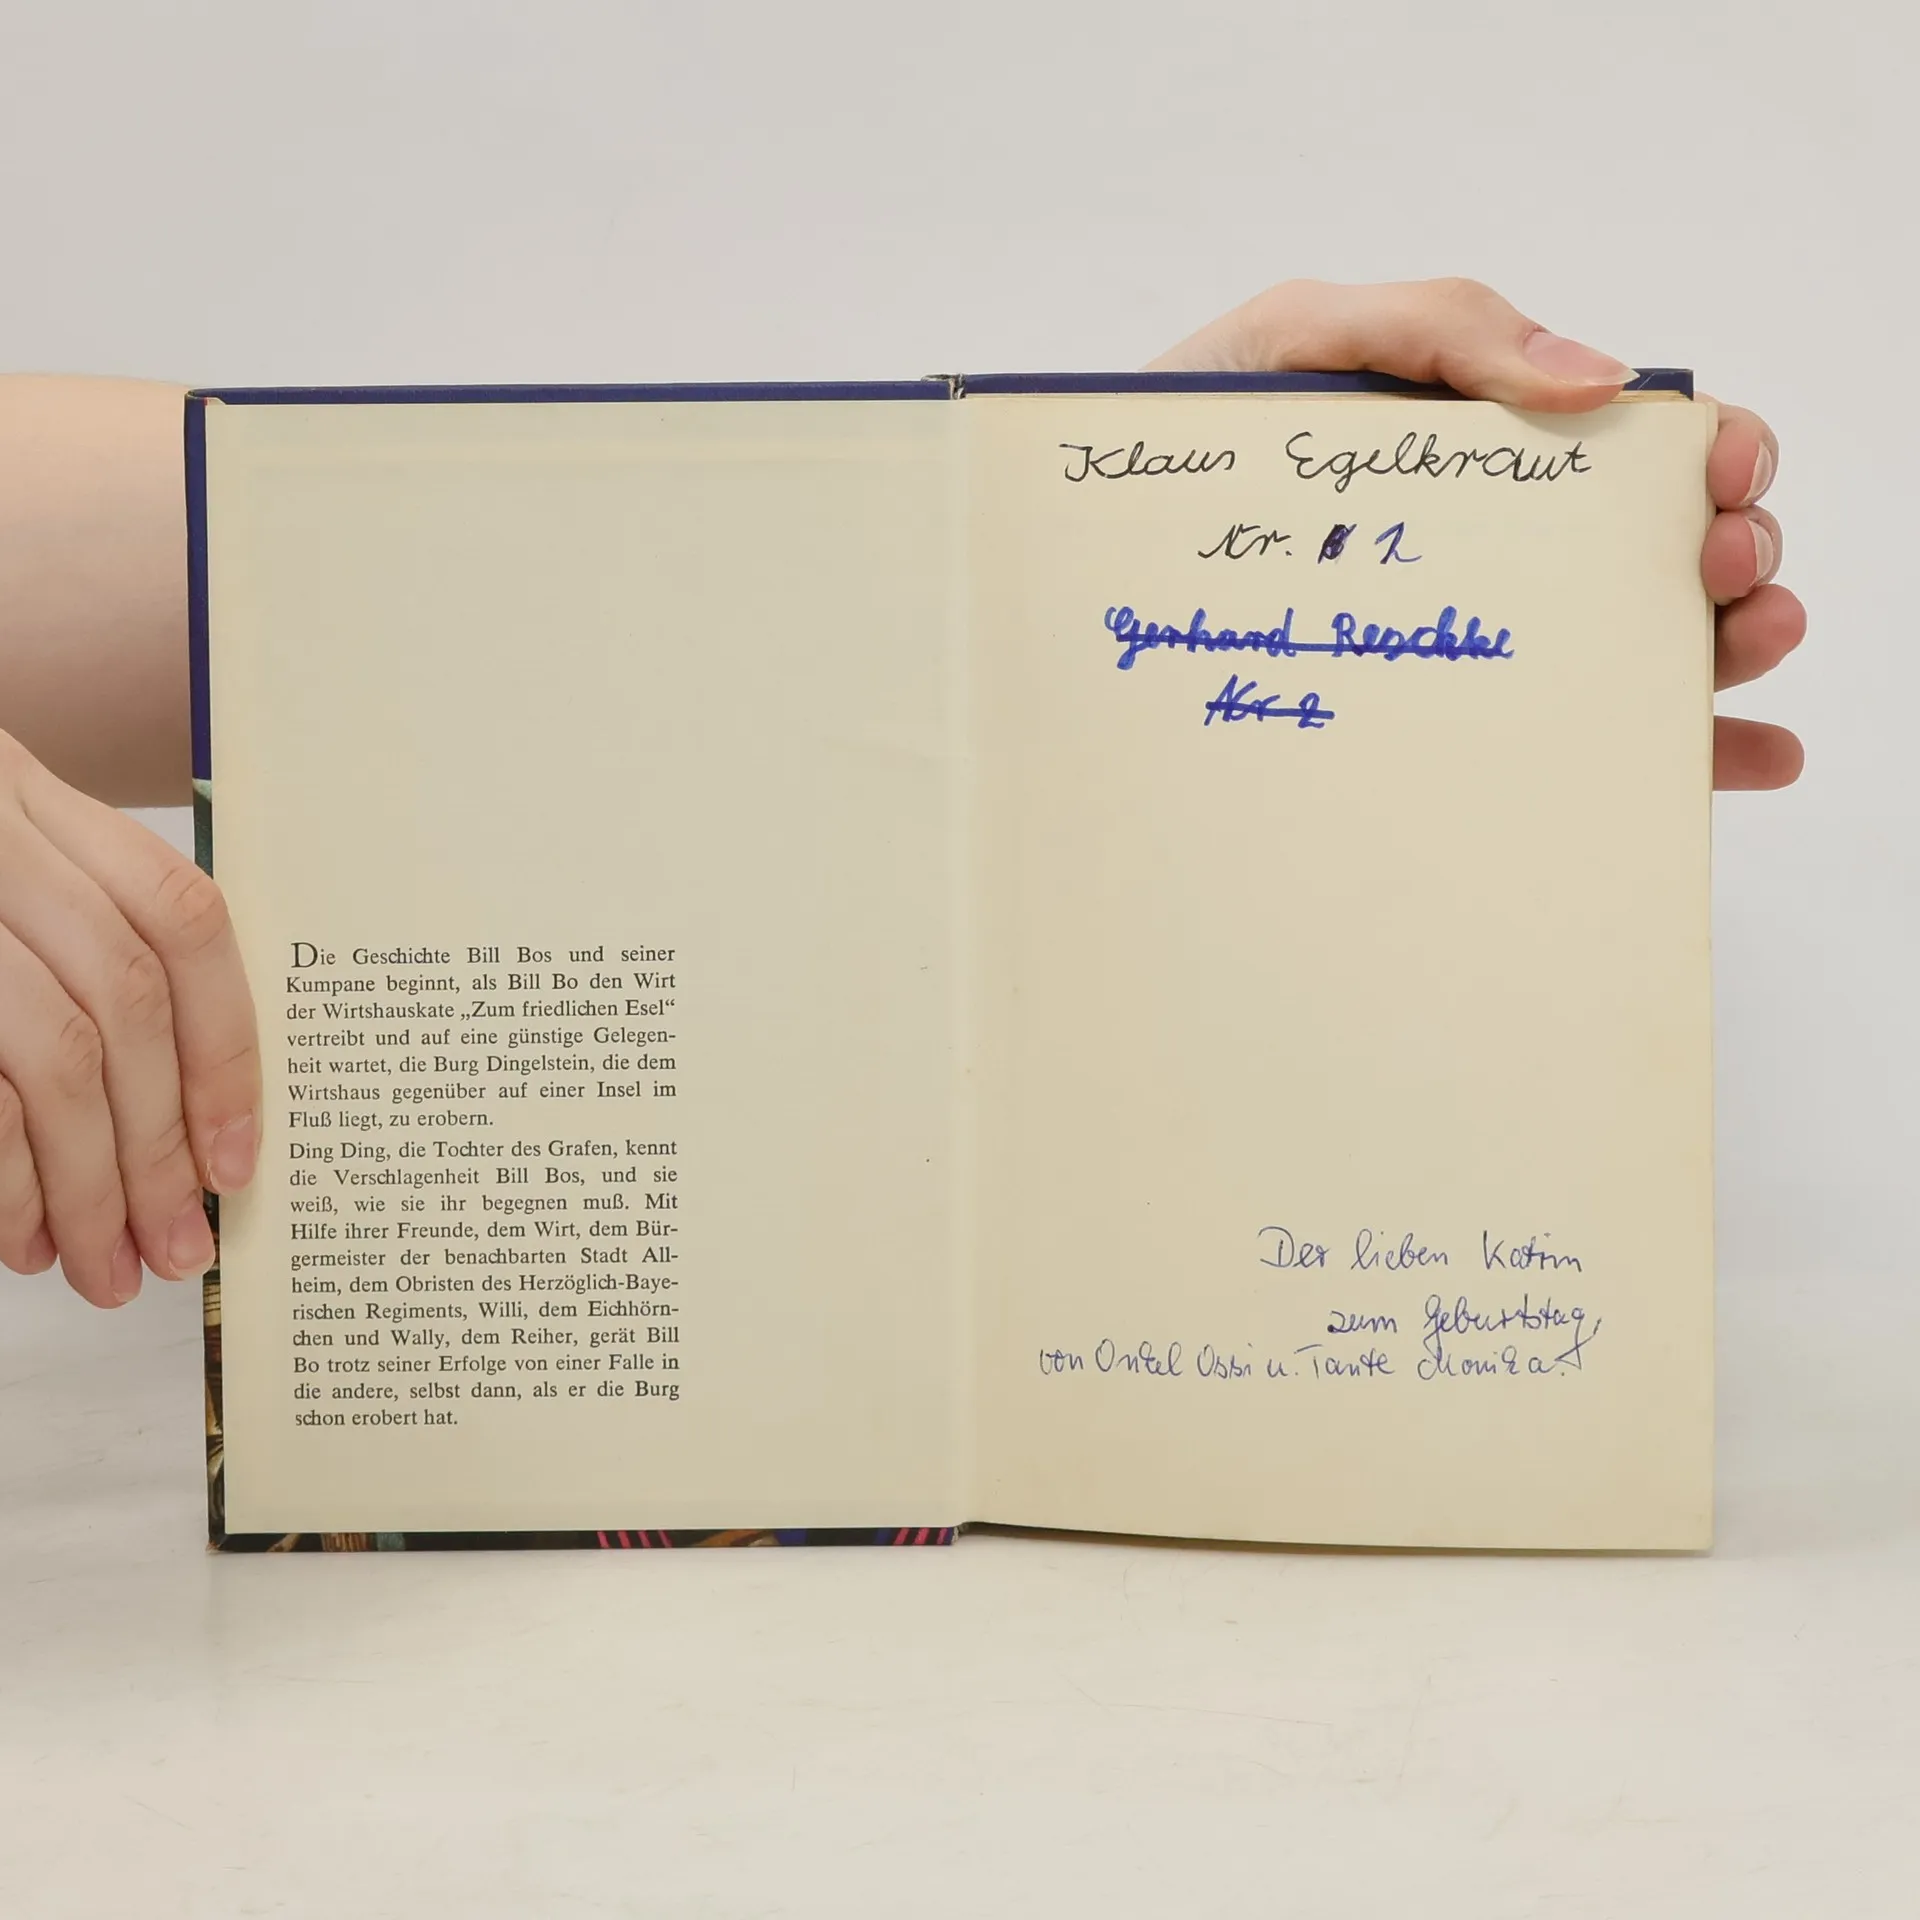 Die Geschichte Bill Bos und seiner
Kumpane beginnt, als Bill Bo den Wirt
der Wirtshauskate „Zum friedlichen Esel“
vertreibt und auf eine günstige Gelegen-
heit wartet, die Burg Dingelstein, die dem
Wirtshaus gegenüber auf einer Insel im
Fluß liegt, zu erobern.
Ding Ding, die Tochter des Grafen, kennt
die Verschlagenheit Bill Bos, und sie
weiß, wie sie ihr begegnen muß. Mit
Hilfe ihrer Freunde, dem Wirt, dem Bür-
germeister der benachbarten Stadt All-
heim, dem Obristen des Herzöglich-Baye-
rischen Regiments, Willi, dem Eichhörn-
chen und Wally, dem Reiher, gerät Bill
Bo trotz seiner Erfolge von einer Falle in
die andere, selbst dann, als er die Burg
schon erobert hat.
Klaus Egelkraut
Nr. 2
Gerhard Reschke
Nr 2
Der lieben Katrin
zum Geburtstag,
von Onkel Ossi u. Tante Monika.